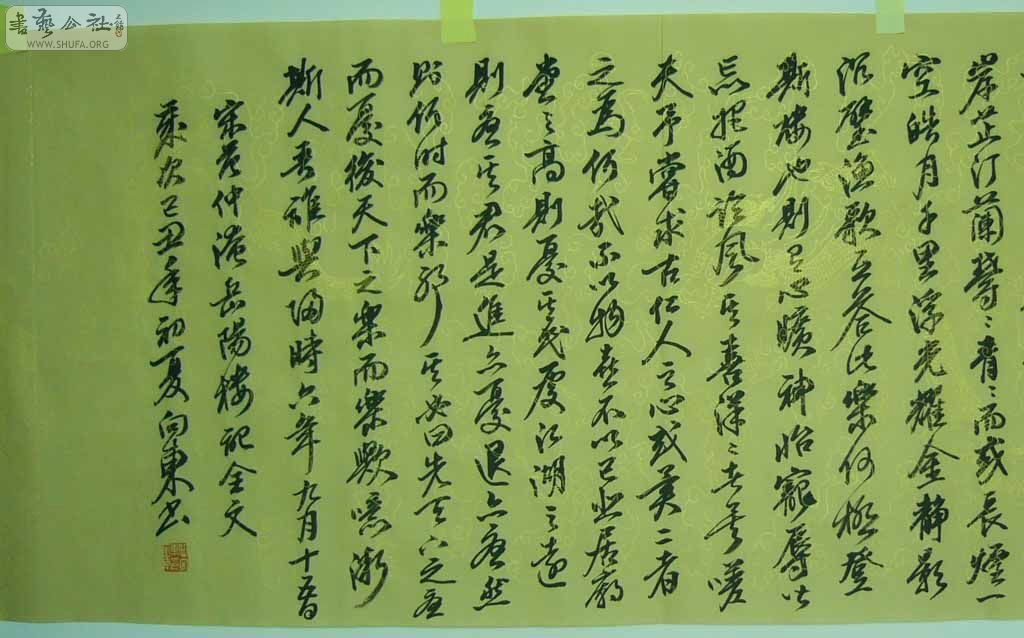 書藝公社
WWW.SHUFA.ORG
岸芷汀蘭鬱〻青〻而或長煙一
空皓月千里浮光耀金靜影
沉璧漁歌互答此樂何極登
斯樓也則有心曠神怡寵辱皆
忘把酒臨風其喜洋〻者矣嗟
夫予嘗求古仁人之心或異二者
之為何哉不以物喜不以己悲居廟
堂之高則憂其民處江湖之遠
則憂其君是進亦憂退亦憂然
則何時而樂耶其必曰先天下之憂
而憂後天下之樂而樂歟噫微
斯人吾誰與歸時六年九月十五日
宋范仲淹岳陽樓記全文
歲次己丑年初夏向東書